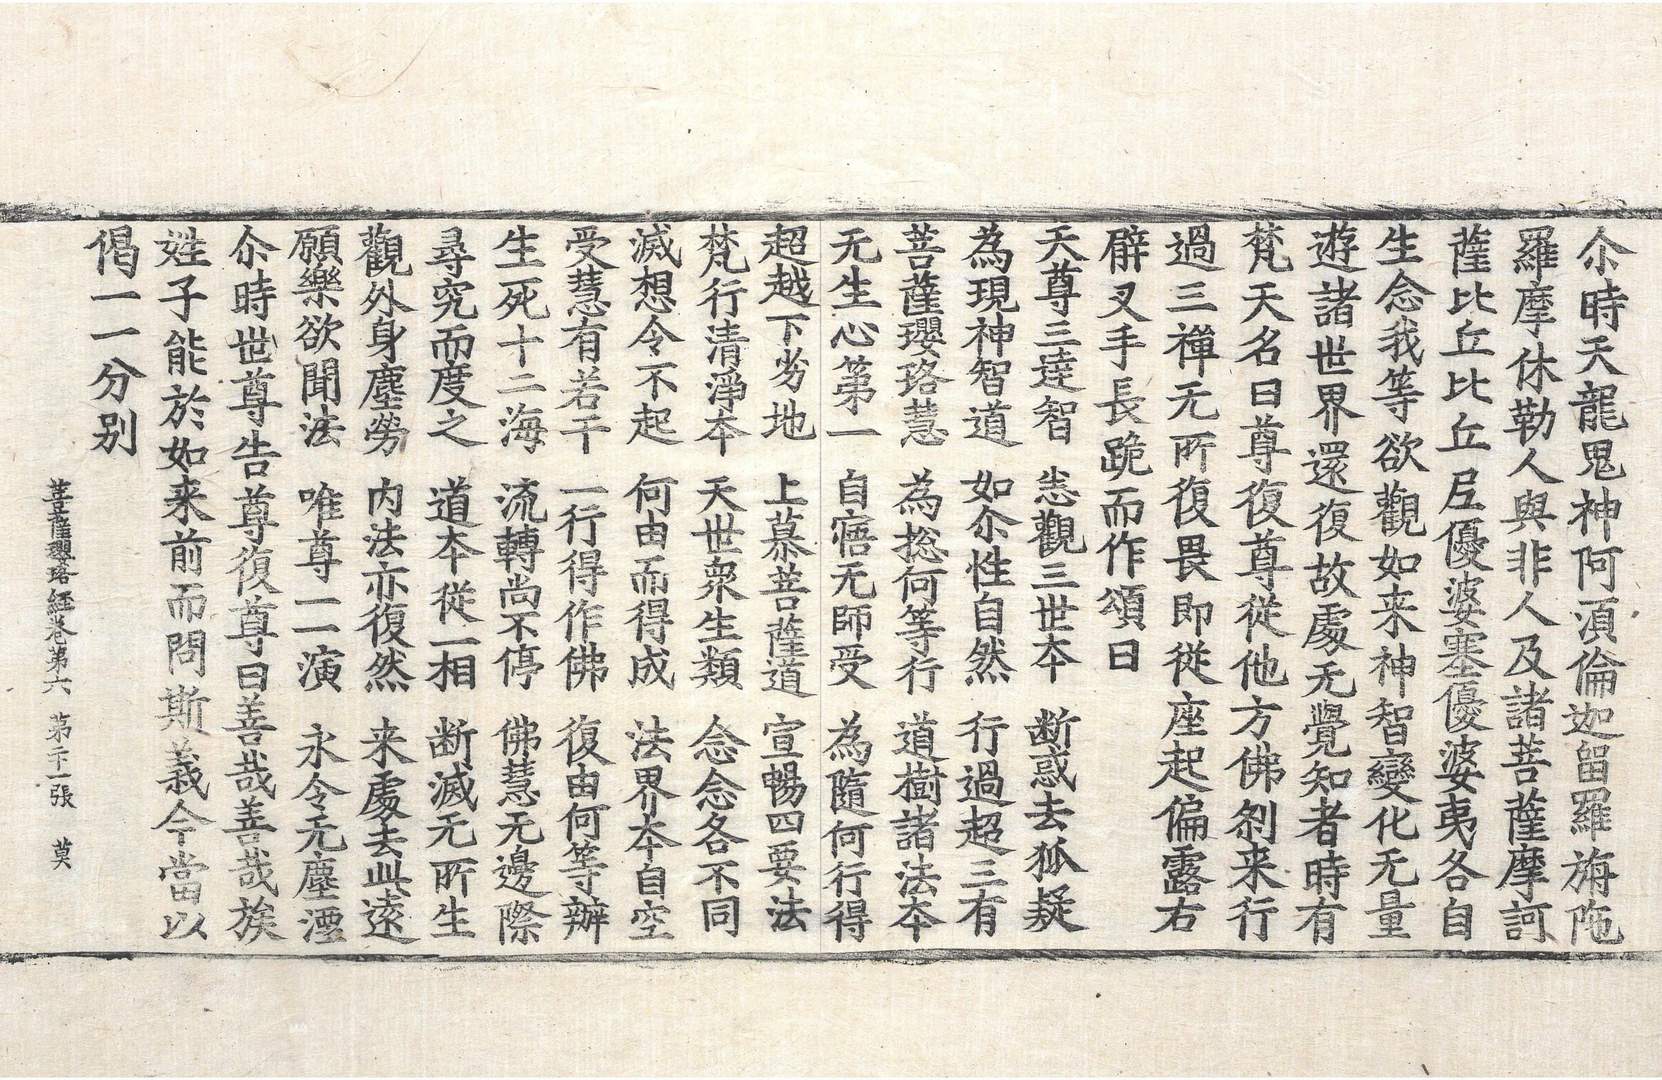 尒時天龍鬼神阿湏倫迦留羅旃陁
羅摩休勒人與非人及諸菩薩摩訶
薩比丘比丘尼優婆塞優婆夷各自
生念我等欲觀如来神智變化无量
遊諸世界還復故處无覺知者時有
梵天名曰尊復尊從他方佛刹来行
過三禪无所復畏即從座起偏露右
臂叉手長跪而作頌曰
天尊三達智 悉觀三世本 断惑去狐疑
為現神智道 如尒性自然 行過超三有
菩薩瓔珞慧 為捴何等行 道樹諸法本
无生心第一 自寤无師受 為隨何行得
超越下劣地 上慕菩薩道 宣暢四要法
梵行清淨本 天世衆生類 念念各不同
滅想令不起 何由而得成 法界本自空
受慧有若干 一行得作佛 復由何等辦
生死十二海 流轉尚不停 佛慧无邊際
尋究而度之 道本從一相 断滅无所生
觀外身塵勞 内法亦復然 来處去此遠
願樂欲聞法 唯尊一一演 永令无塵㙷
尒時世尊告尊復尊曰善哉善哉族
姓子能於如来前而問斯義今當以
偈一一分别
菩薩瓔珞經卷第六 第二十一張 莫